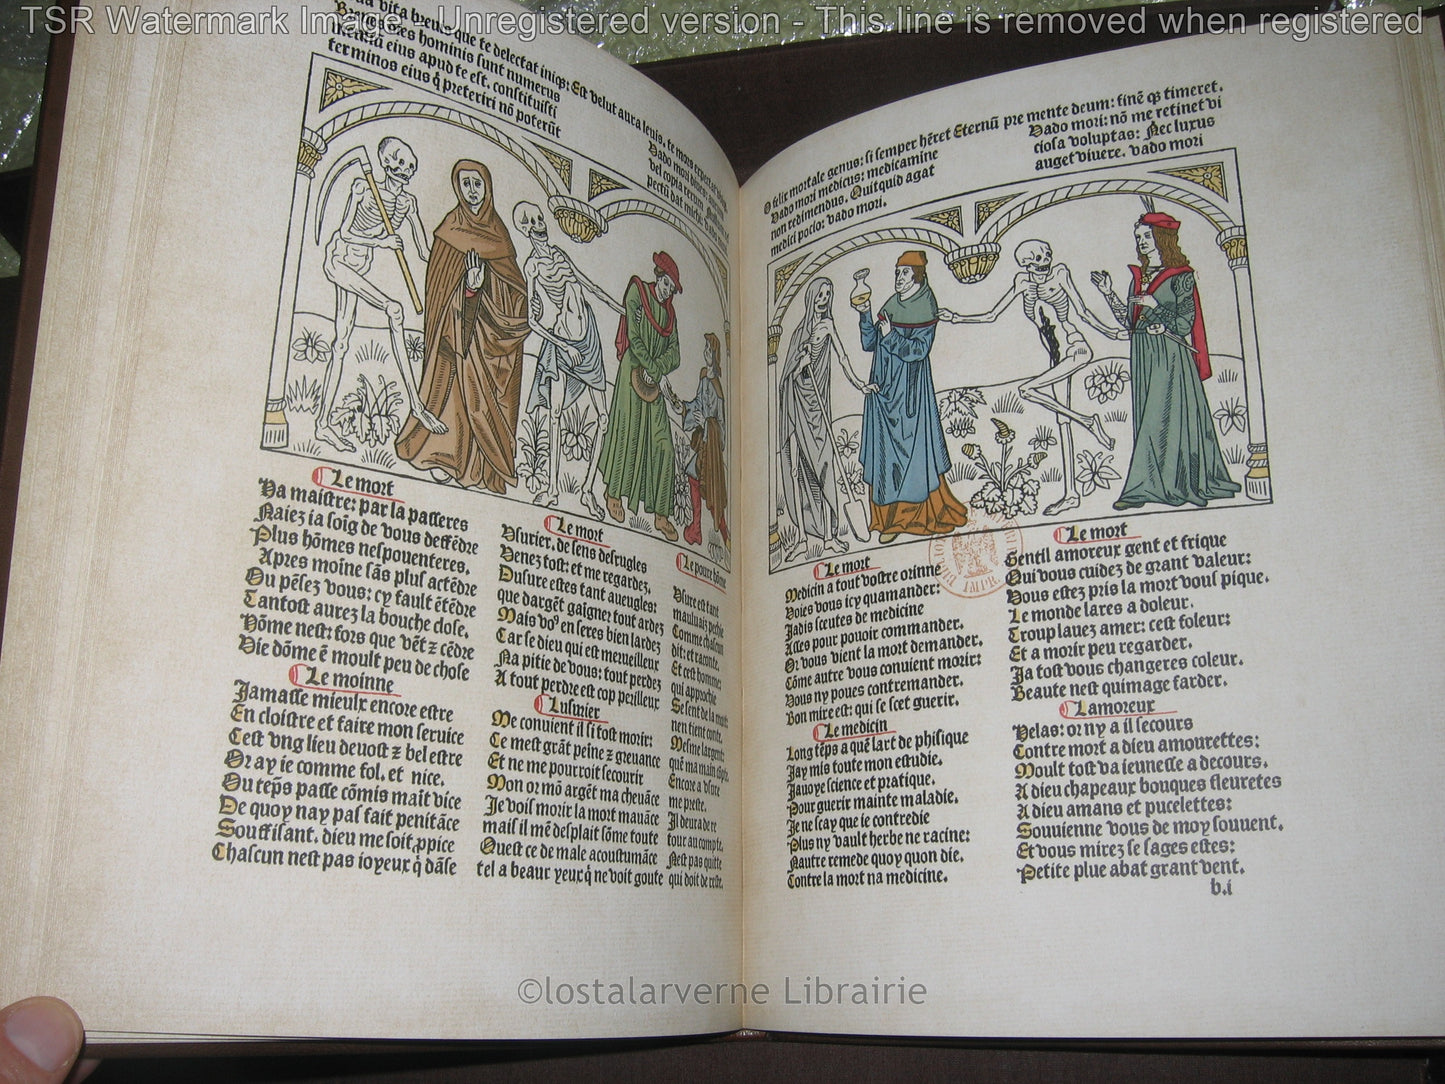 TSR Watermark Image - Unregistered version - This line is removed when registered
vita breuis que te delectat iniqs: Est velut aura leuis. te mors
Breues dies hominis sunt numerus
mensiũ eius apud te est. constituisti
terminos eius q̃ preteriri nõ poterũt
Vado mori
Le mort
Ha maistre: par la passeres
Naiez ia soig̃ de vous deffẽdre
Plus hõmes nespouenteres.
Apres moine sãs plus actẽdre
Ou pẽsez vous: cy fault ẽtẽdre
Tantost aurez la bouche close.
Hõme nest: fors que vẽt ⁊ cẽdre
Vie dõme ẽ moult peu de chose
Le moinne
Jamasse mieulx encore estre
En cloistre et faire mon seruice
Cest vng lieu deuost ⁊ bel estre
Or ay ie comme fol. et nice.
Ou tẽps passe cõmis mait̃ vice
De quoy nay pas fait penitãce
Souffisant. dieu me soit ꝓpice
Chascun nest pas ioyeux q̃ dãse
Le mort
Vsurier. de sens desrugles
Venez tost: et me regardez.
Dusure estes tant aueugles:
que dargẽt gaigner tout ardez
Mais vo⁹ en seres bien lardez
Car se dieu qui est merueilleux
Na pitie de vous: tout perdez
A tout perdre est cop perilleux
Lusurier
Me conuient il si tost morir:
Ce mest grãt peine ⁊ greuance
Et ne me pourroit secourir
Mon or mõ argẽt ma cheuãce
Je vois morir la mort mauãce
mais il mẽ desplait sõme toute
Quest ce de male acoustumãce
tel a beaux yeux q̃ ne voit goute
Le poure hõme
Vsure est tant
mauluaiz pechie
Comme chascun
dit: et raconte.
Et cest homme:
qui approchie
Se sent de la mort:
nen tient conte.
Mesme largent:
quẽ ma main cõpte
Encore a vsure
me preste.
Il deura de re
tour au compte.
Nest pas quitte
qui doit de reste.
O felix mortale genus: si semper hẽret Eternũ pre mente deum: finẽ qs timeret.
Vado mori medicus: medicamine
non redimendus. Quitquid agat
medici pocio: vado mori.
Vado mori: nõ me retinet vi
ciosa voluptas: Nec luxus
auget viuere. vado mori
Le mort
Medicin a tout vostre orinne
Voies vous icy quamander:
Jadis sceutes de medicine
Asses pour pouoir commander.
Or vous vient la mort demander.
Cõme autre vous conuient morir:
Vous ny poues contremander.
Bon mire est: qui se scet guerir.
Le medicin
Long tẽps a quẽ lart de phisique
Jay mis toute mon estudie.
Jauoye science et pratique.
Pour guerir mainte maladie.
Je ne scay que ie contredie
Plus ny vault herbe ne racine:
Nautre remede quoy quon die.
Contre la mort na medicine.
Le mort
Gentil amoreux gent et frique
Qui vous cuidez de grant valeur:
Vous estez pris la mort vous pique.
Le monde lares a doleur.
Troup lauez amer: cest foleur:
Et a morir peu regarder.
Ja tost vous changeres coleur.
Beaute nest quimage farder.
Lamoreux
Helas: or ny a il secours
Contre mort a dieu amourettes:
Moult tost va ieunesse a decours.
A dieu chapeaux bouques fleuretes
A dieu amans et pucelettes:
Souuienne vous de moy souuent.
Et vous mirez se sages estes:
Petite pluе abat grant vent.
b.i
©lostalarverne Librairie